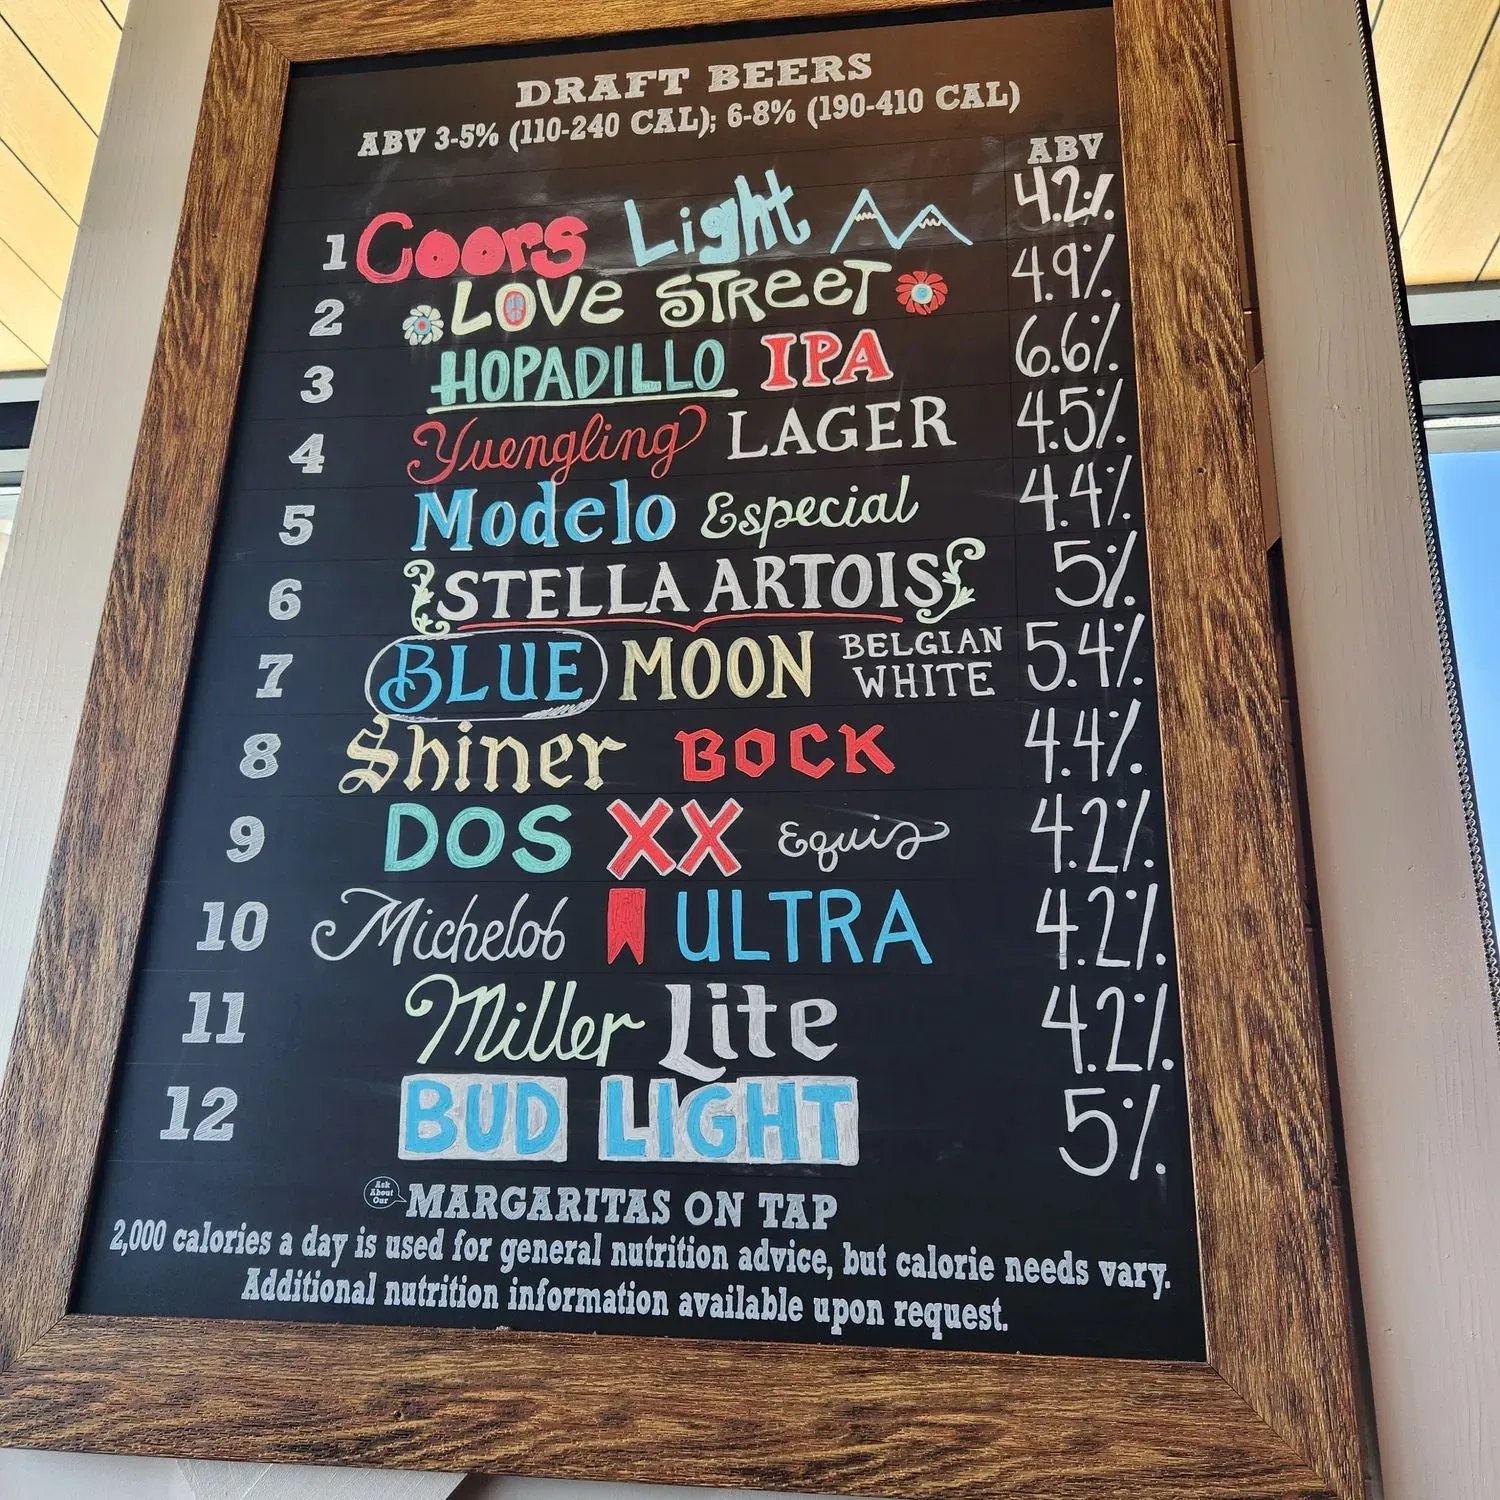 DRAFT BEERS
ABV 3-5% (110-240 CAL); 6-8% (190-410 CAL)
ABV
1 Coors Light 4.2%
2 LOVE STREET 4.9%
3 HOPADILLO IPA 6.6%
4 Yuengling LAGER 4.5%
5 Modelo Especial 4.4%
6 STELLA ARTOIS 5%
7 BLUE MOON BELGIAN WHITE 5.4%
8 Shiner BOCK 4.4%
9 DOS XX Equis 4.2%
10 Michelob ULTRA 4.2%
11 Miller Lite 4.2%
12 BUD LIGHT 5%
Ask About Our MARGARITAS ON TAP
2,000 calories a day is used for general nutrition advice, but calorie needs vary.
Additional nutrition information available upon request.